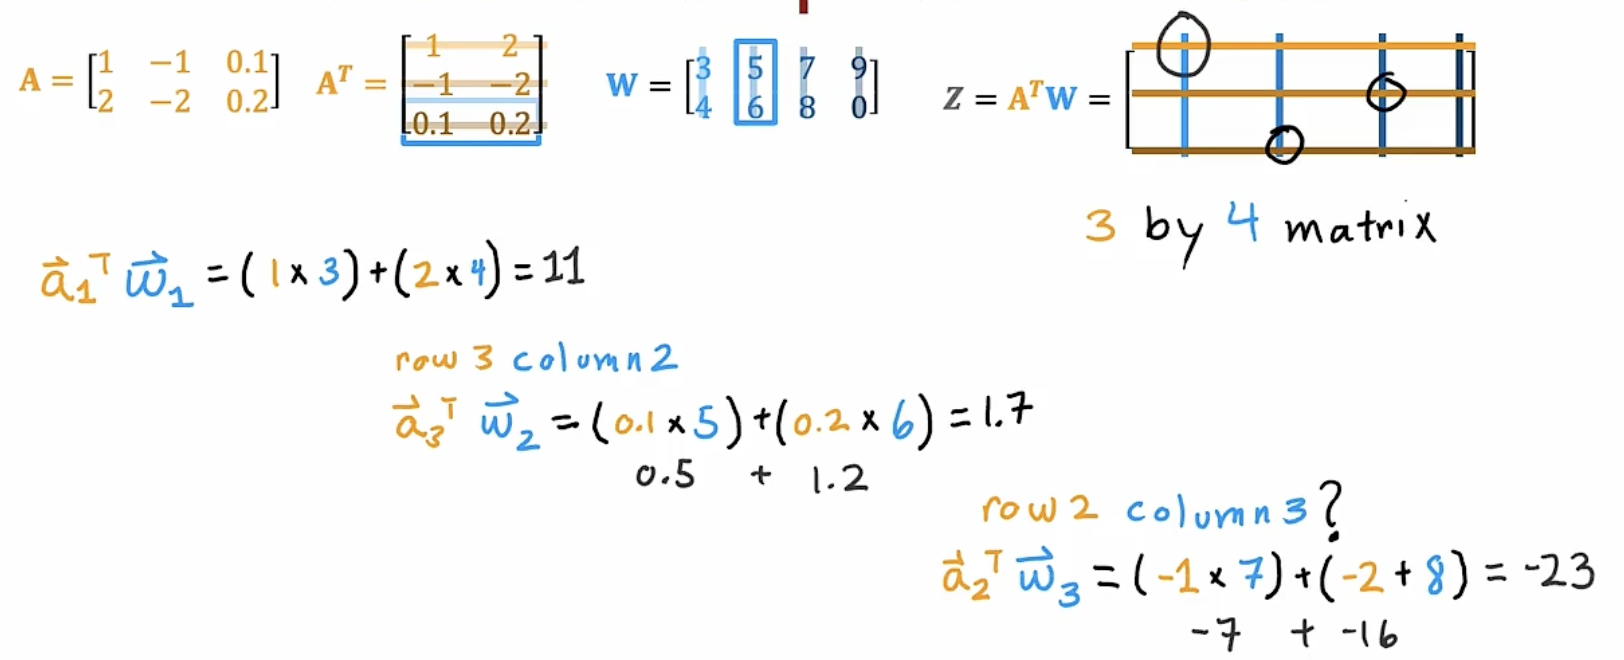 A = [1 −1 0.1
2 −2 0.2]
Aᵀ = [1 2
−1 −2
0.1 0.2]
W = [3 5 7 9
4 6 8 0]
Z = AᵀW = [ ]
3 by 4 matrix
a⃗₁ᵀ w⃗₁ = (1 × 3) + (2 × 4) = 11
row 3 column 2
a⃗₃ᵀ w⃗₂ = (0.1 × 5) + (0.2 × 6) = 1.7
0.5 + 1.2
row 2 column 3?
a⃗₂ᵀ w⃗₃ = (-1 × 7) + (-2 + 8) = -23
-7 + -16